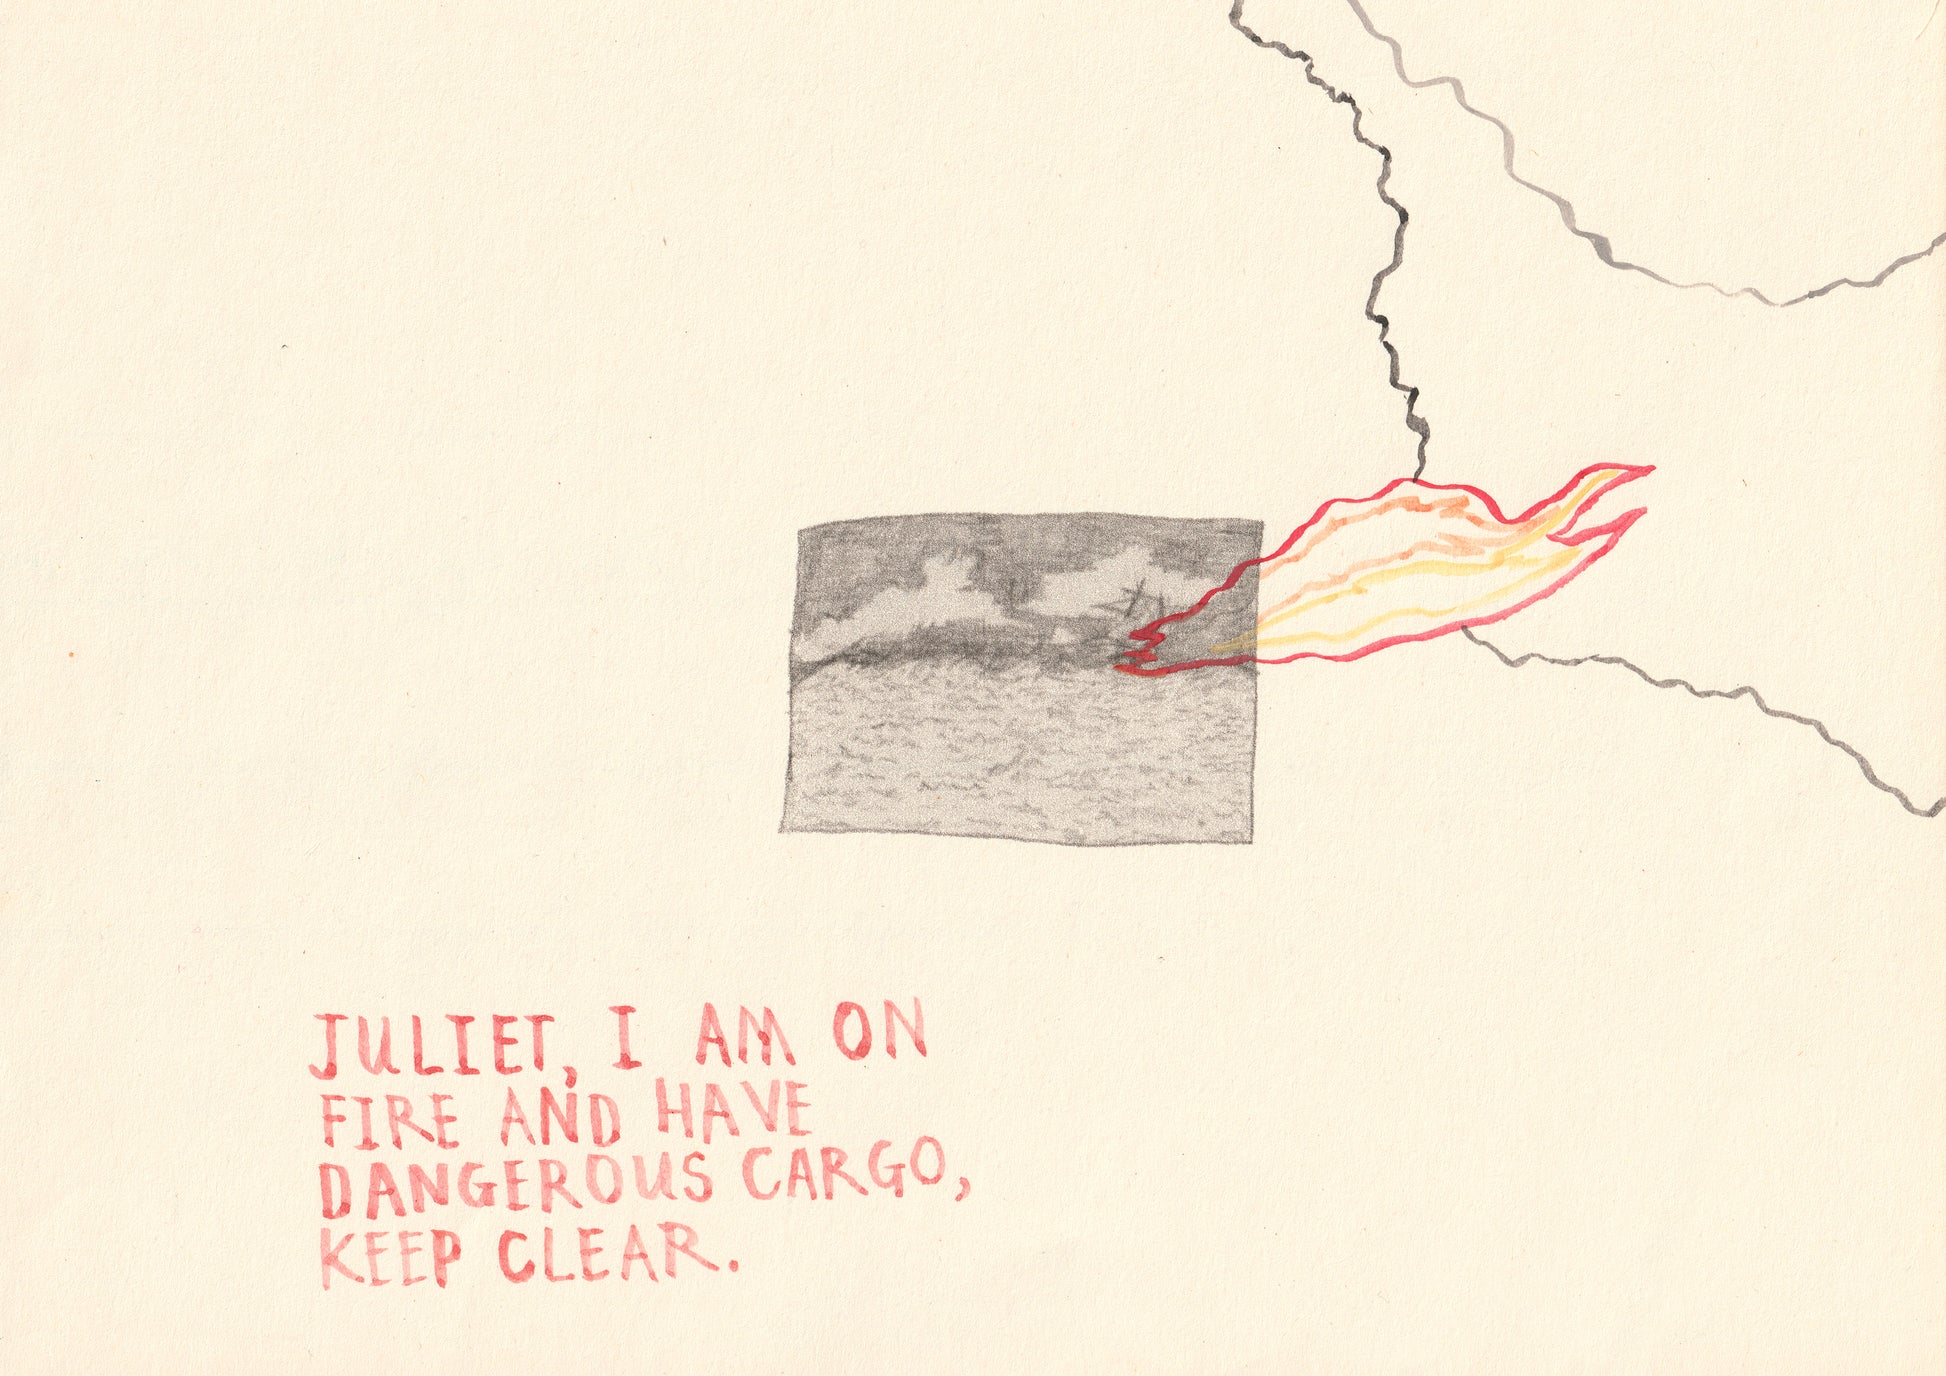 JULIET, I AM ON
FIRE AND HAVE
DANGEROUS CARGO,
KEEP CLEAR.